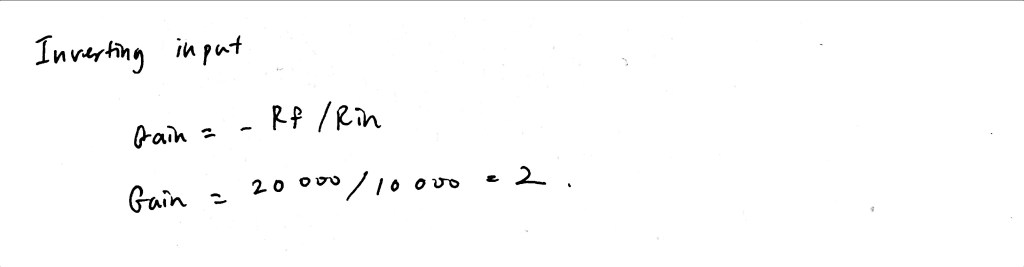 Inverting input
Gain = - Rf / Rin
Gain = 20 000 / 10 000 = 2.